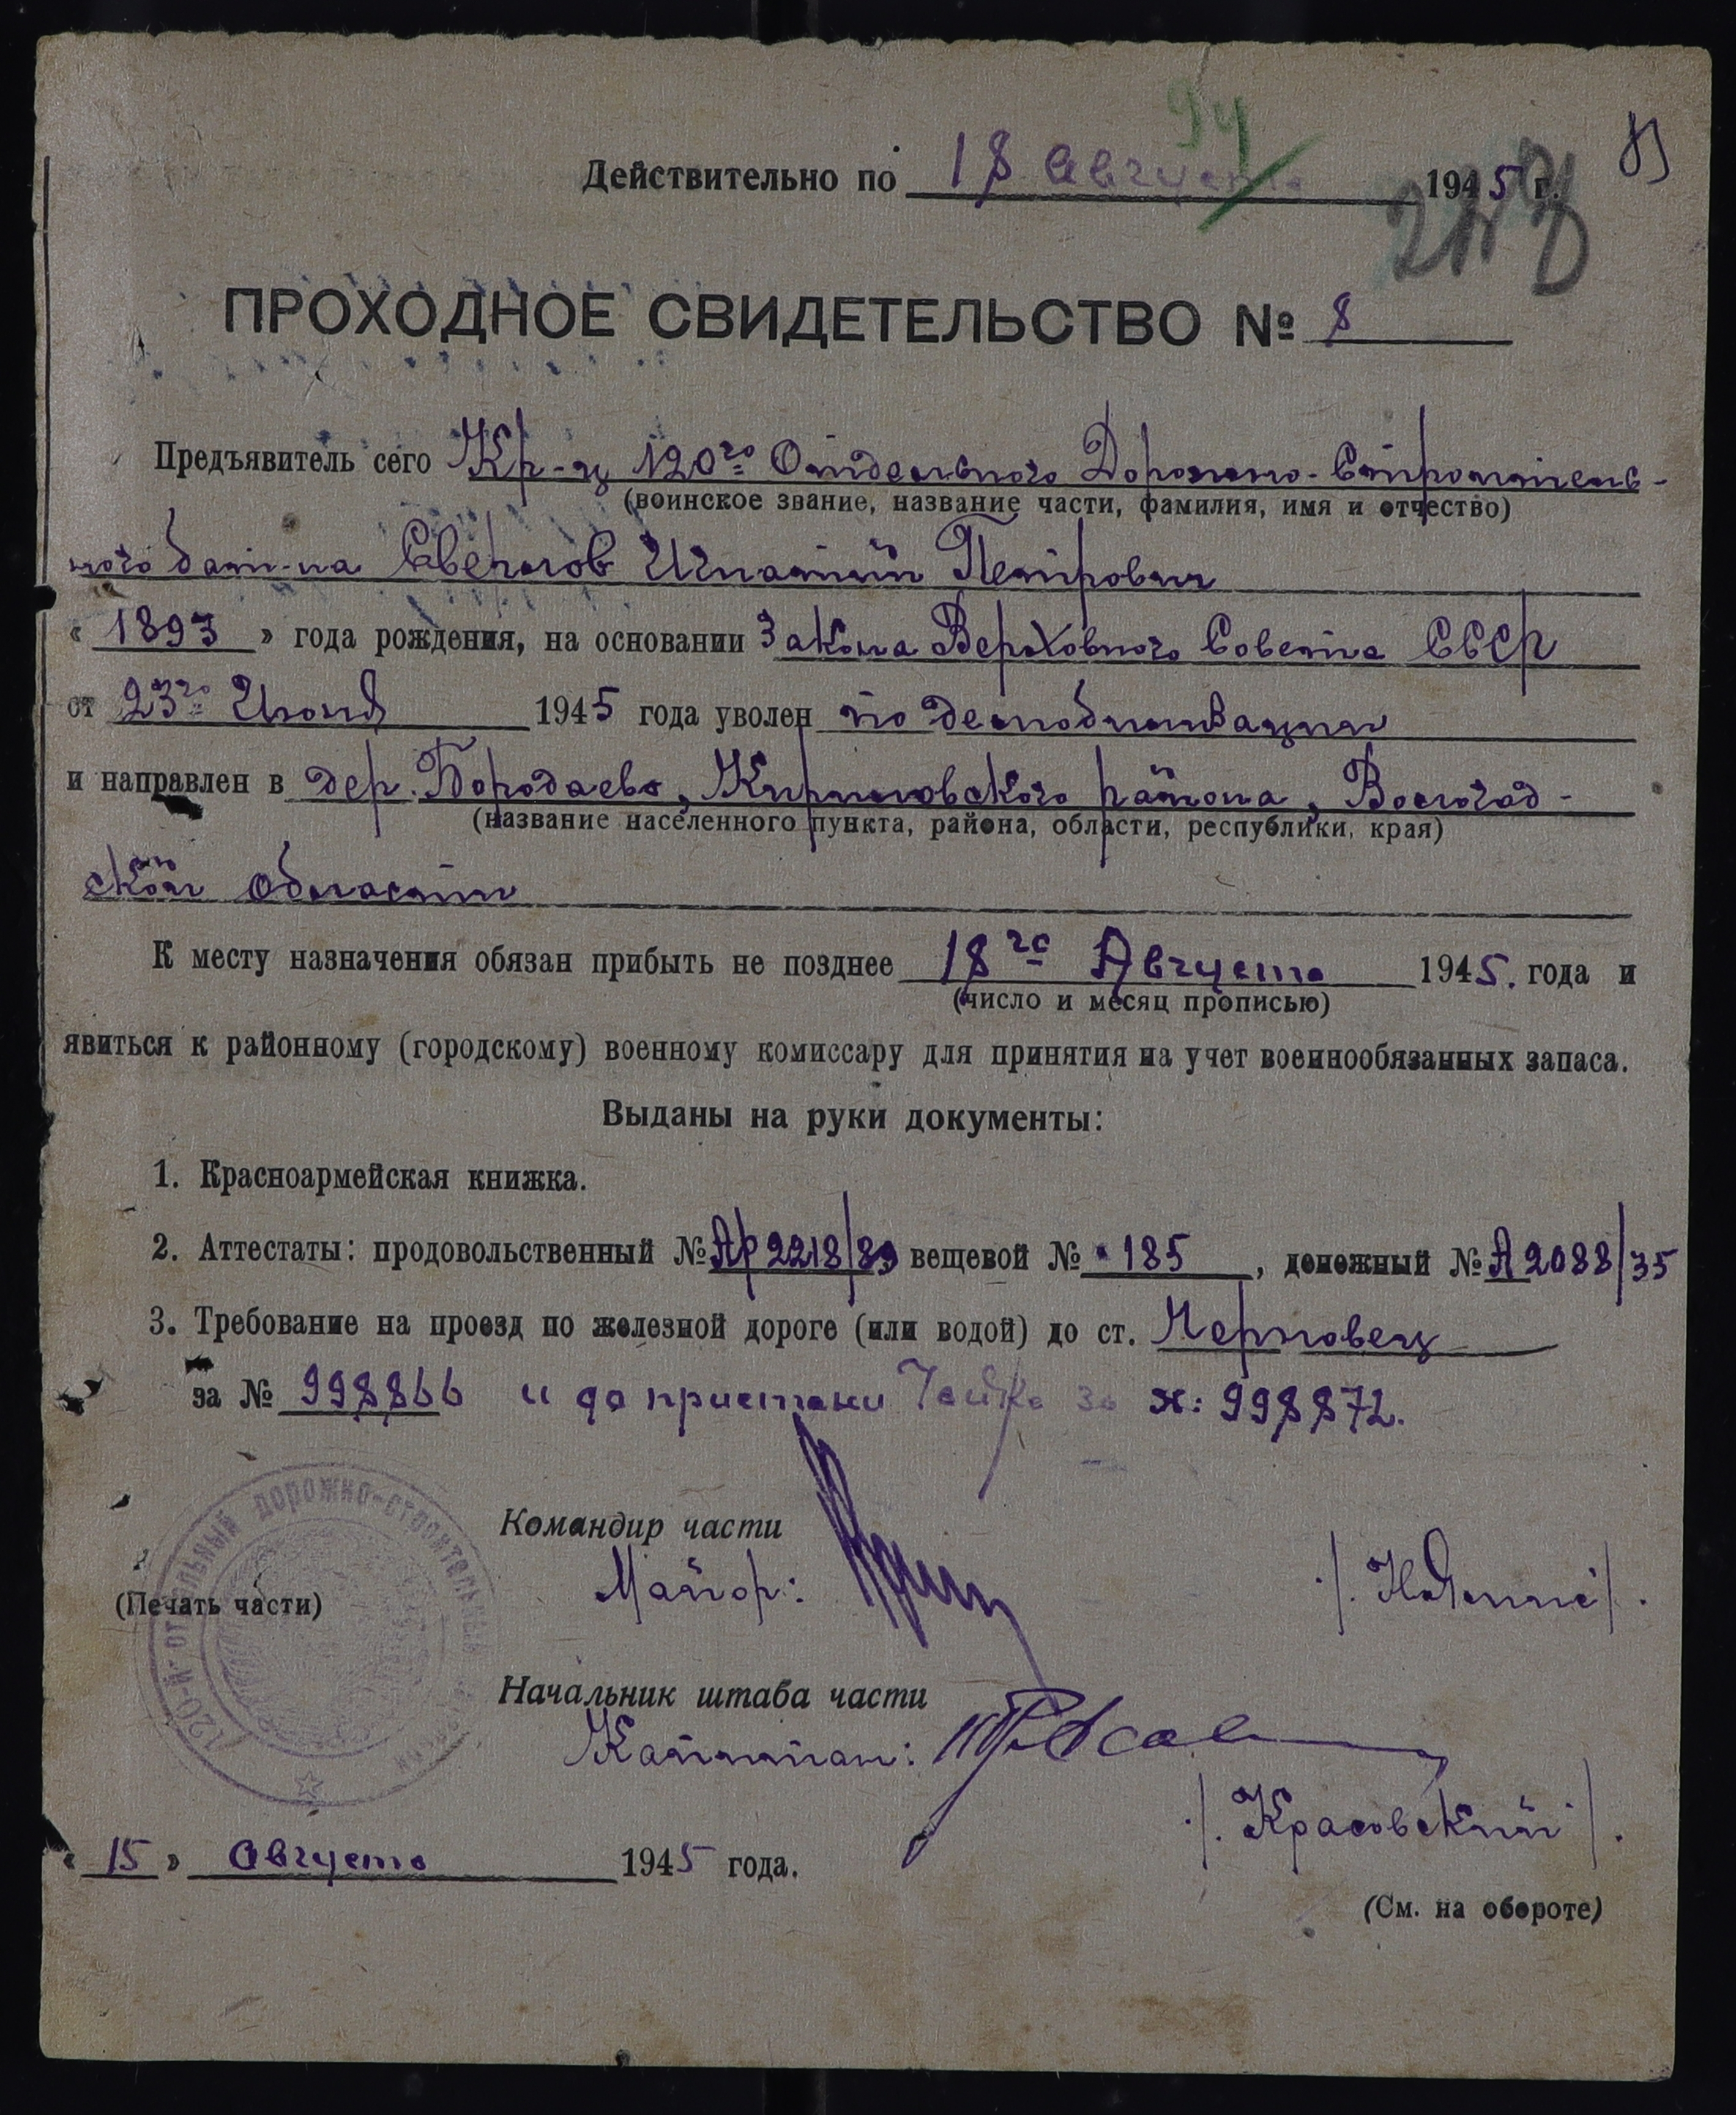 94
83
Действительно по 18 Августа 1945 г.
ПРОХОДНОЕ СВИДЕТЕЛЬСТВО № 8
Предъявитель сего Кр-ц 120го Отдельного Дорожно-Строитель-
(воинское звание, название части, фамилия, имя и отчество)
ного бат-на Сверлов Игнатий Петрович
« 1893 » года рождения, на основании Закона Верховного Совета СССР
от 23го Июня 1945 года уволен по демобилизации
и направлен в дер. Бородаево, Кирилловского района, Вологод-
(название населенного пункта, района, области, республики, края)
ской области
К месту назначения обязан прибыть не позднее 18го Августа 1945. года и
(число и месяц прописью)
явиться к районному (городскому) военному комиссару для принятия на учет военнообязанных запаса.
Выданы на руки документы:
1. Красноармейская книжка.
2. Аттестаты: продовольственный № Ар 2218/89 вещевой № 185, денежный № А 2088/35
3. Требование на проезд по железной дороге (или водой) до ст. Череповец
за № 998866 и до пристани за №: 998872.
Командир части
Майор:
(Печать части)
120-й ОТДЕЛЬНЫЙ ДОРОЖНО-СТРОИТЕЛЬНЫЙ
Начальник штаба части
Капитан:
/. Красовский /.
« 15 » Августа 1945 года.
(См. на обороте)